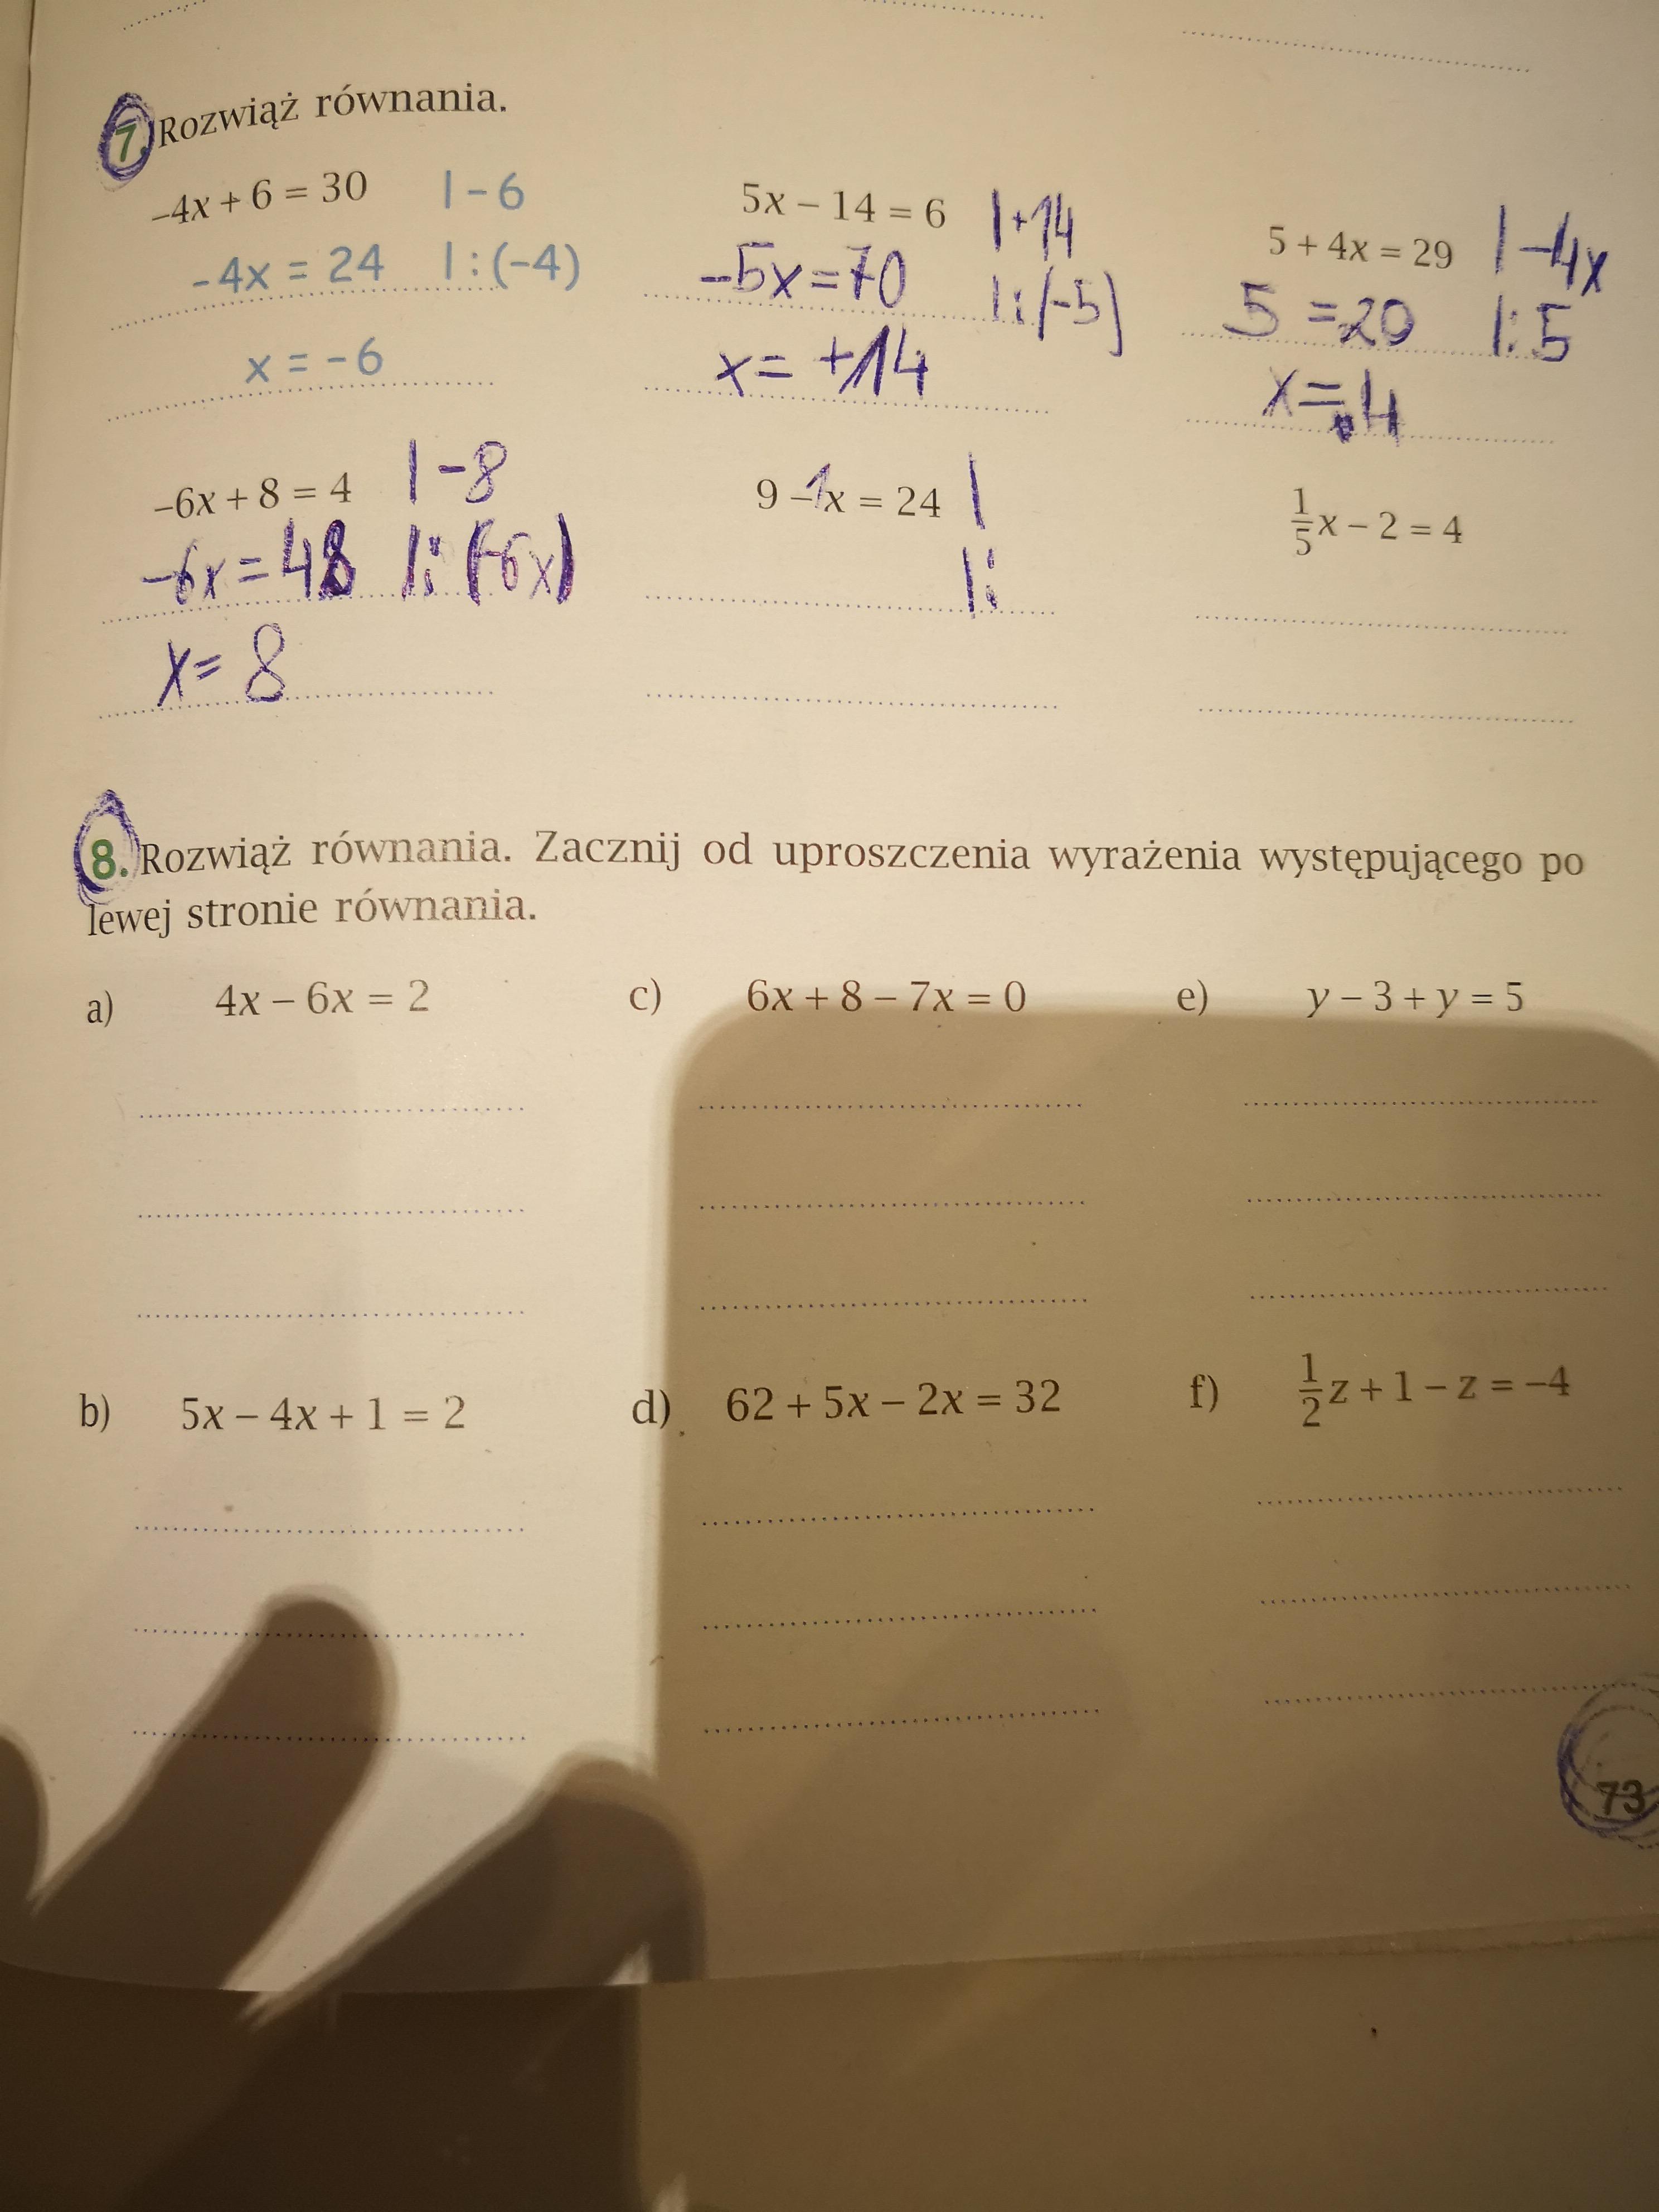 7. Rozwiąż równania.
-4x + 6 = 30 | - 6
-4x = 24 | : (-4)
x = -6
5x - 14 = 6 | +14
-5x = 70 | : (-5)
x = +14
5 + 4x = 29 | -4x
5 = 20 | : 5
x = 4
-6x + 8 = 4 | -8
-6x = 48 | : (-6x)
x = 8
9 - 1x = 24 |
| :
1/5 x - 2 = 4
8. Rozwiąż równania. Zacznij od uproszczenia wyrażenia występującego po
lewej stronie równania.
a) 4x - 6x = 2
c) 6x + 8 - 7x = 0
e) y - 3 + y = 5
b) 5x - 4x + 1 = 2
d) 62 + 5x - 2x = 32
f) 1/2 z + 1 - z = -4
73